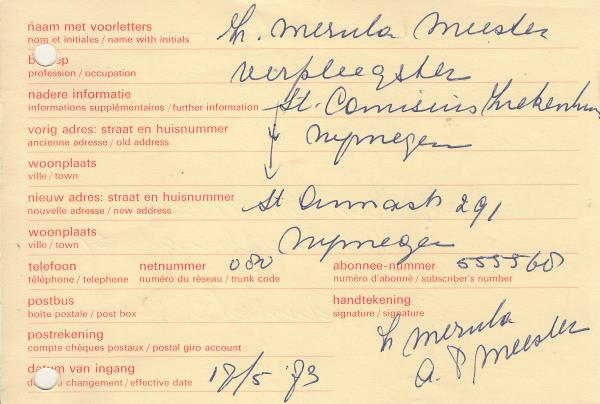 naam met voorletters
nom et initiales / name with initials
h. merula Meester
profession / occupation
verpleegster
nadere informatie
informations supplémentaires / further information
St. Canisius Ziekenhuis
vorig adres: straat en huisnummer
ancienne adresse / old address
Nijmegen
woonplaats
ville / town
nieuw adres: straat en huisnummer
nouvelle adresse / new address
St Annastr 291
woonplaats
ville / town
Nijmegen
telefoon netnummer 080 abonnee-nummer 555560
téléphone / telephone numéro du réseau / trunk code numéro d'abonné / subscriber's number
postbus handtekening
boite postale / post box signature / signature
postrekening
compte chèques postaux / postal giro account
h merula
a. P Meester
datum van ingang
changement / effective date
/5 '73